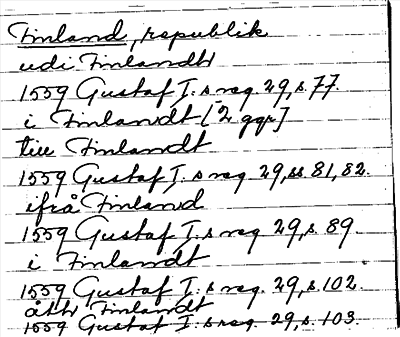 Finland, republik
udi Finlandh
1559 Gustaf I:s reg. 29, s. 77.
i Finlandt [2 ggr]
till Finlandt
1559 Gustaf I:s reg. 29, ss 81, 82.
ifrå Finland
1559 Gustaf I:s reg. 29, s. 89.
i Finlandt
1559 Gustaf I:s reg. 29, s. 102.
åtth Finlandt
1559 Gustaf I:s reg. 29, s. 103.